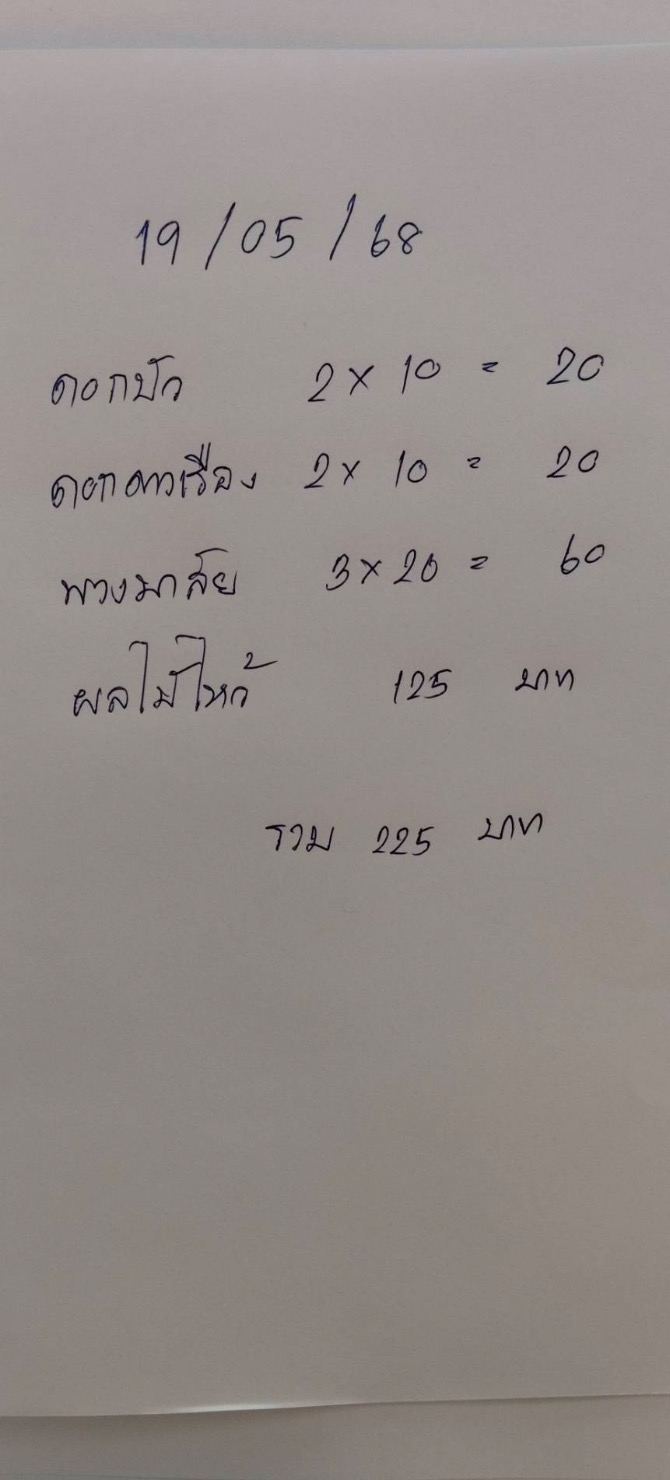 19/05/68
ดอกบัว 2 × 10 = 20
ดอกดาวเรือง 2 × 10 = 20
พวงมาลัย 3 × 20 = 60
ผลไม้ไหว้ 125 บาท
รวม 225 บาท